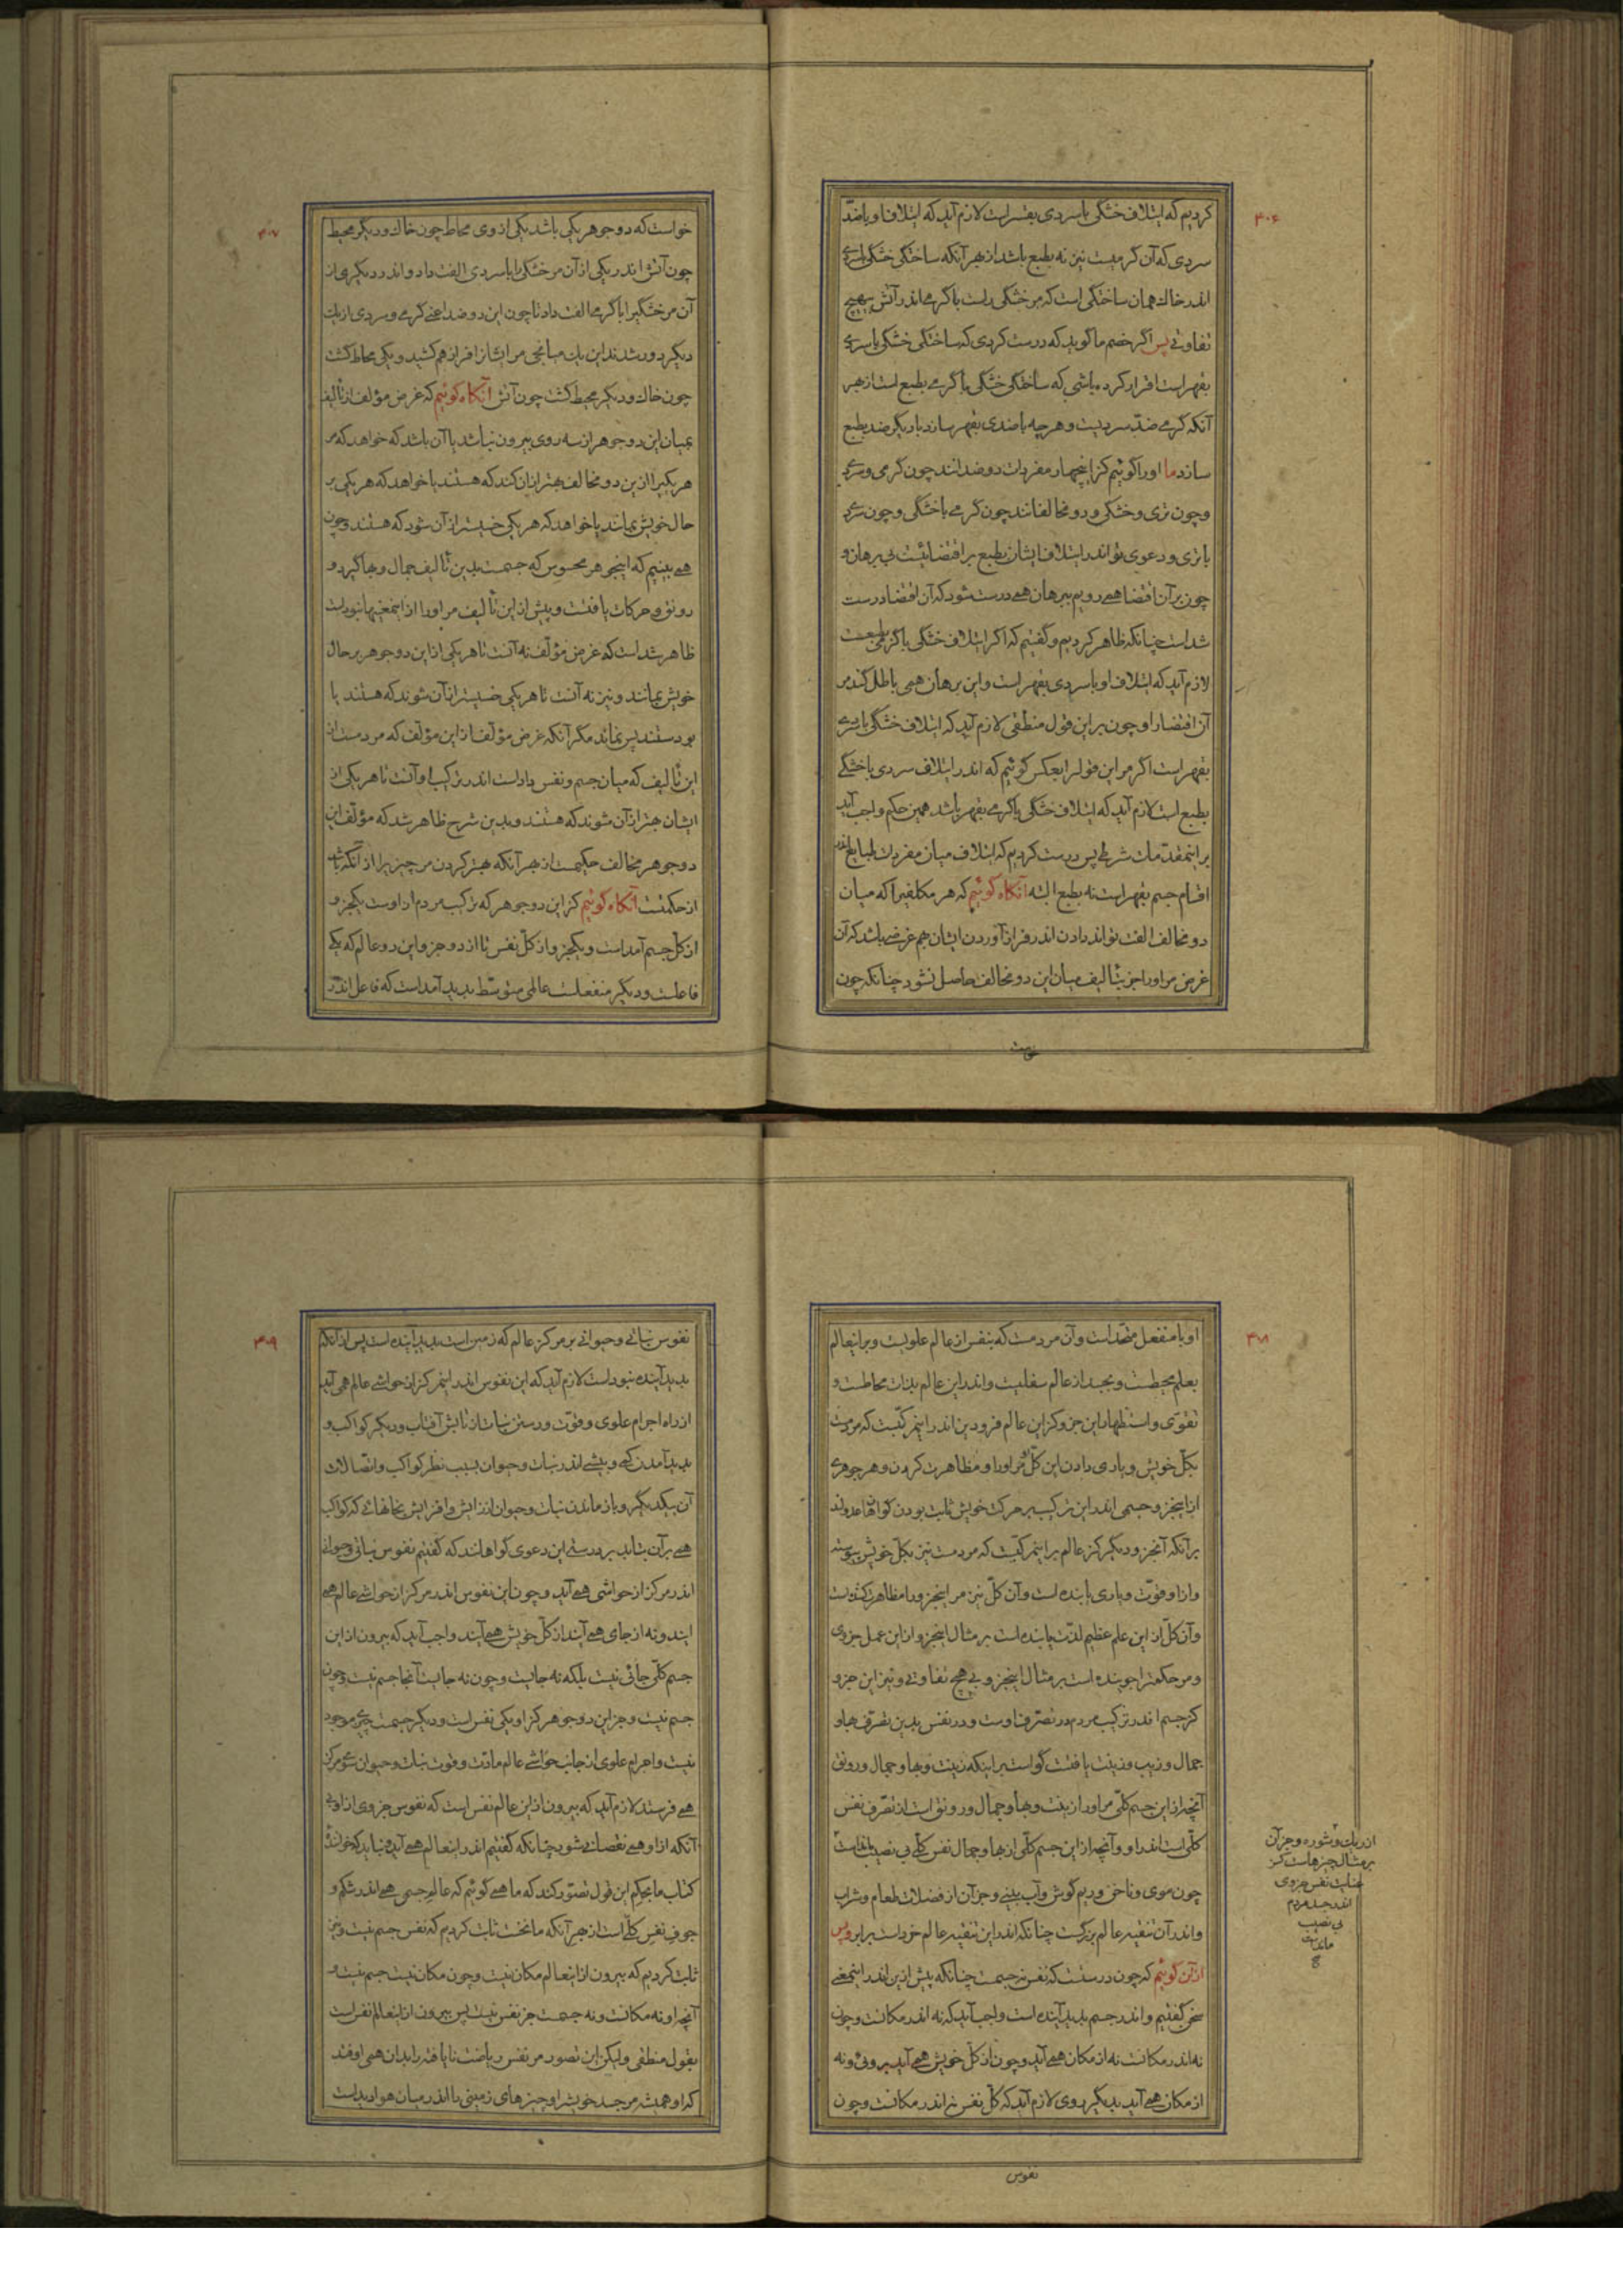 ۳۰۶
کردیم که ایتلاف خشکی با سردی بقسر است لازم آید که ایتلاف او با ضد
سردی که آن گرمیست نیز نه بطبع باشد از بهر آنکه ساختگی خشکی با سردی
اندر خاک همان ساختگی است که مر خشکی راست با گرمی اندر آتش بی هیچ
تفاوتی پس اگر خصم ما گوید که درست کردی که ساختگی خشکی با سردی
بقهر است اقرار کرده باشی که ساختگی خشکی با گرمی بطبع است از بهر
آنکه گرمی ضد سردیست و هر چه با ضدی بقهر سازد با دیگر ضد بطبع
سازد ما او را گوئیم کز اینچهار مفردات دو ضدانند چون گرمی و سردی
و چون تری و خشکی و دو مخالفانند چون گرمی با خشکی و چون سردی
با تری و دعوی تو اندر ایتلاف ایشان بطبع بر اقتضائیست بی برهان و
چون بر آن اقتضا همی رویم ببرهان همی درست شود که آن اقتضا درست
شد است چنانکه ظاهر کردیم و گفتیم که اگر ایتلاف خشکی با گرمی بطبعست
لازم آید که ایتلاف او با سردی بقهر است و این برهان همی باطل کند مر
آن اقتضا را و چون بر این قول منطقی لازم آید که ایتلاف خشکی با سردی
بقهر است اگر مر این قول را بعکس گوئیم که اندر ایتلاف سردی با خشکی
بطبع است لازم آید که ایتلاف خشکی با گرمی بقهر باشد همین حکم واجب آید
بر اینمقدمات شرطی پس درست کردیم که ایتلاف میان مفردات طبایع اندر
اقسام جسم بقهر است نه بطبع البته آنگاه گوئیم که هر مکلفیرا که میان
دو مخالف الفت تواند دادن اندر فراز آوردن ایشان بهم غرضی باشد که آن
غرض مر او را جز بتألیف میان این دو مخالف حاصل نشود چنانکه چون
خواست
۳۰۷
خواست که دو جوهر یکی باشد یکی از وی محاط چون خاک و دیگر محیط
چون آتش اندر یکی از آن مر خشکی را با سردی الفت داد و اندر دیگری از
آن مر خشگیرا با گرمی الفت داد تا چون این دو ضد اعنی گرمی و سردی از یک
دیگر دور شدند این یک میانجی مر ایشان را فراز هم کشید و یکی محاط گشت
چون خاک و دیگر محیط گشت چون آتش آنگاه گوئیم که غرض مؤلف از تألیف
بمیان این دو جوهر از سه روی بیرون نباشد یا آن باشد که خواهد که مر
هر یکیرا از این دو مخالف بهتر از آن کند که هستند یا خواهد که هر یکی بر
حال خویش بمانند یا خواهد که هر یکی خسیستر از آن شود که هستند و چون
همی بینیم که اینجوهر محسوس که جسمست بدین تألیف جمال و بها گیرد و
رونق و حرکات یافتست و پیش از این تألیف مر او را از اینمعنیها نبود است
ظاهر شد است که غرض مؤلف نه آنست تا هر یکی از این دو جوهر بر حال
خویش بمانند و نیز نه آنست تا هر یکی خسیستر از آن شوند که هستند یا
بودستند پس نماند مگر آنکه غرض مؤلف از این مؤلف که مردمست از
این تألیف که میان جسم و نفس داد است اندر ترکیب او آنست تا هر یکی از
ایشان بهتر از آن شوند که هستند و بدین شرح ظاهر شد که مؤلف این
دو جوهر مخالف حکیمست از بهر آنکه بهتر کردن مر چیزیرا از آنکه باشد
از حکمتست آنگاه گوئیم کز این دو جوهر که ترکیب مردم از اوست یکجزو
از کل جسم آمد است و یکجزو از کل نفس تا از دو جزو این دو عالم که یکی
فاعلست و دیگر منفعلست عالمی متوسط پدید آمد است که فاعل اندر
۳۰۸
او با منفعل متحد است و آن مردمست که بنفس از عالم علویست و بر اینعالم
بعلم محیطست و بجسد از عالم سفلیست و اندر این عالم بذات محاطست و
تقوی و استظهار این جزو کز این عالم فرودین اندر این مرکبست که مردمست
بکل خویش و یاری دادن این کل مر او را و مظاهرت کردن و هر جوهری
از اینجزو جسمی اندر این ترکیب بر حرکت خویش ثابت بودن گواهان عدولند
بر آنکه آنجزو دیگر کز عالم بر اینمرکبست که مردمست نیز بکل خویش پیوسته
و از او قوت و یاری یابنده است و آن کل نیز مر اینجزو را مظاهرت کننده است
و آن کل از این علم عظیم لذت یابنده است بر مثال اینجزو از این عمل جزوی
و مر حکمترا جوینده است بر مثال اینجزو بی هیچ تفاوتی و نیز این جزو
کز جسم اندر ترکیب مردم در تصرف اوست و در نفس بدین تصرف بها و
جمال و زیب و زینت یافتست گواست بر اینکه زینت و بها و جمال و رونق
آنچه از این جسم کلی مر او را زینت و بها و جمال و رونق است از تصرف نفس
کلی است اندر او و آنچه از این جسم کلی از بها و جمال نفس کلی بی نصیب ماندست
چون موی و ناخن و ریم گوش و آب بینی و جز آن از فضلات طعام و شراب
و اندر آن تنقیه عالم بزرگست چنانکه اندر این تنقیه عالم خرد است برابر و پس
از آن گوئیم که چون درستست که نفس نه جسمست چنانکه پیش از این اندر اینمعنی
سخن گفتیم و اندر جسم پدید آینده است واجب آید که نه اندر مکانست و چون
نه اندر مکانست نه از مکان همی آید و چون از کل خویش همی آید بیرونی و نه
از مکان همی آید بدیگر روی لازم آید که کل نفس نه اندر مکانست و چون
از ریک و شوره و جز آن
بر مثال چیزهاست کز
عنایت نفس جزوی
اندر جسد مردم
بی نصیب
ماندست
نفوس
۳۰۹
نفوس نباتی و حیوانی بر مرکز عالم که زمین است پدید آینده است پس از آنکه
پدید آینده نبود است لازم آید که این نفوس اندر اینمرکز از حواشی عالم همی آید
از راه اجرام علوی و قوت و رستن نبات از تابش آفتاب و دیگر کواکب و
پدید آمدن کمی و بیشی اندر نبات و حیوان بسبب نظر کواکب و اتصالات
آن بیکدیگر و باز ماندن نبات و حیوان از زایش و افزایش بجایهائی که کواکب
همی بر آن نتابد بر درستی این دعوی گواهانند که گفتیم نفوس نباتی و حیوانی
اندر مرکز از حواشی همی آید و چون این نفوس اندر مرکز از حواشی عالم همی
آیند و نه از جای همی آیند از کل خویش همی آیند واجب آید که بیرون از این
جسم کلی جائی نیست بلکه نه جایست و چون نه جایست آنجا جسم نیست و چون
جسم نیست و جز این دو جوهر کز او یکی نفس است و دیگر جسمست چیزی موجود
نیست و اجرام علوی از جانب حواشی عالم مادت و قوت نبات و حیوان سوی مرکز
همی فرستد لازم آید که بیرون از این عالم نفس است که نفوس جزوی از او بی
آنکه از او همی نقصانی شود چنانکه گفتیم اندر اینعالم همی آید و نباید که خواننده
کتاب ما بحکم این قول تصور کند که ما همی گوئیم که عالم جسمی همی اندر شکم و
جوف نفس کلی است از بهر آنکه ما نخست ثابت کردیم که نفس جسم نیست و نیز
ثابت کردیم که بیرون از اینعالم مکان نیست و چون مکان نیست جسم نیست و
آنچه او نه مکانست و نه جسمست جز نفس نیست پس بیرون از اینعالم نفس است
بقول منطقی ولیکن این تصور مر نفس ریاضت نایافته را بدان همی اوفتد
که او همیشه مر جسد خویش را و چیزهای زمینی را اندر میان هوا دید است